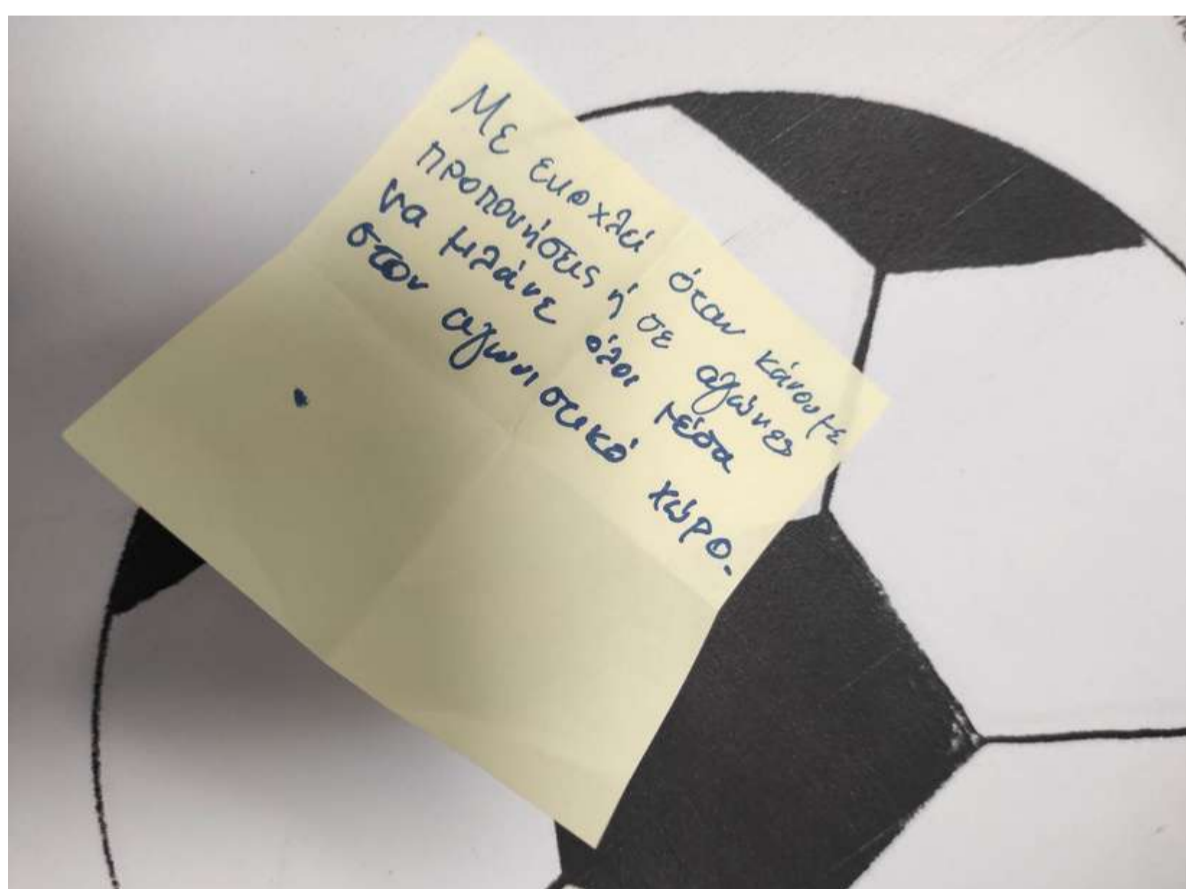 Με ενοχλεί όταν κάνουμε
προπονήσεις ή σε αγώνες
να μιλάνε όλοι μέσα
στον αγωνιστικό χώρο.